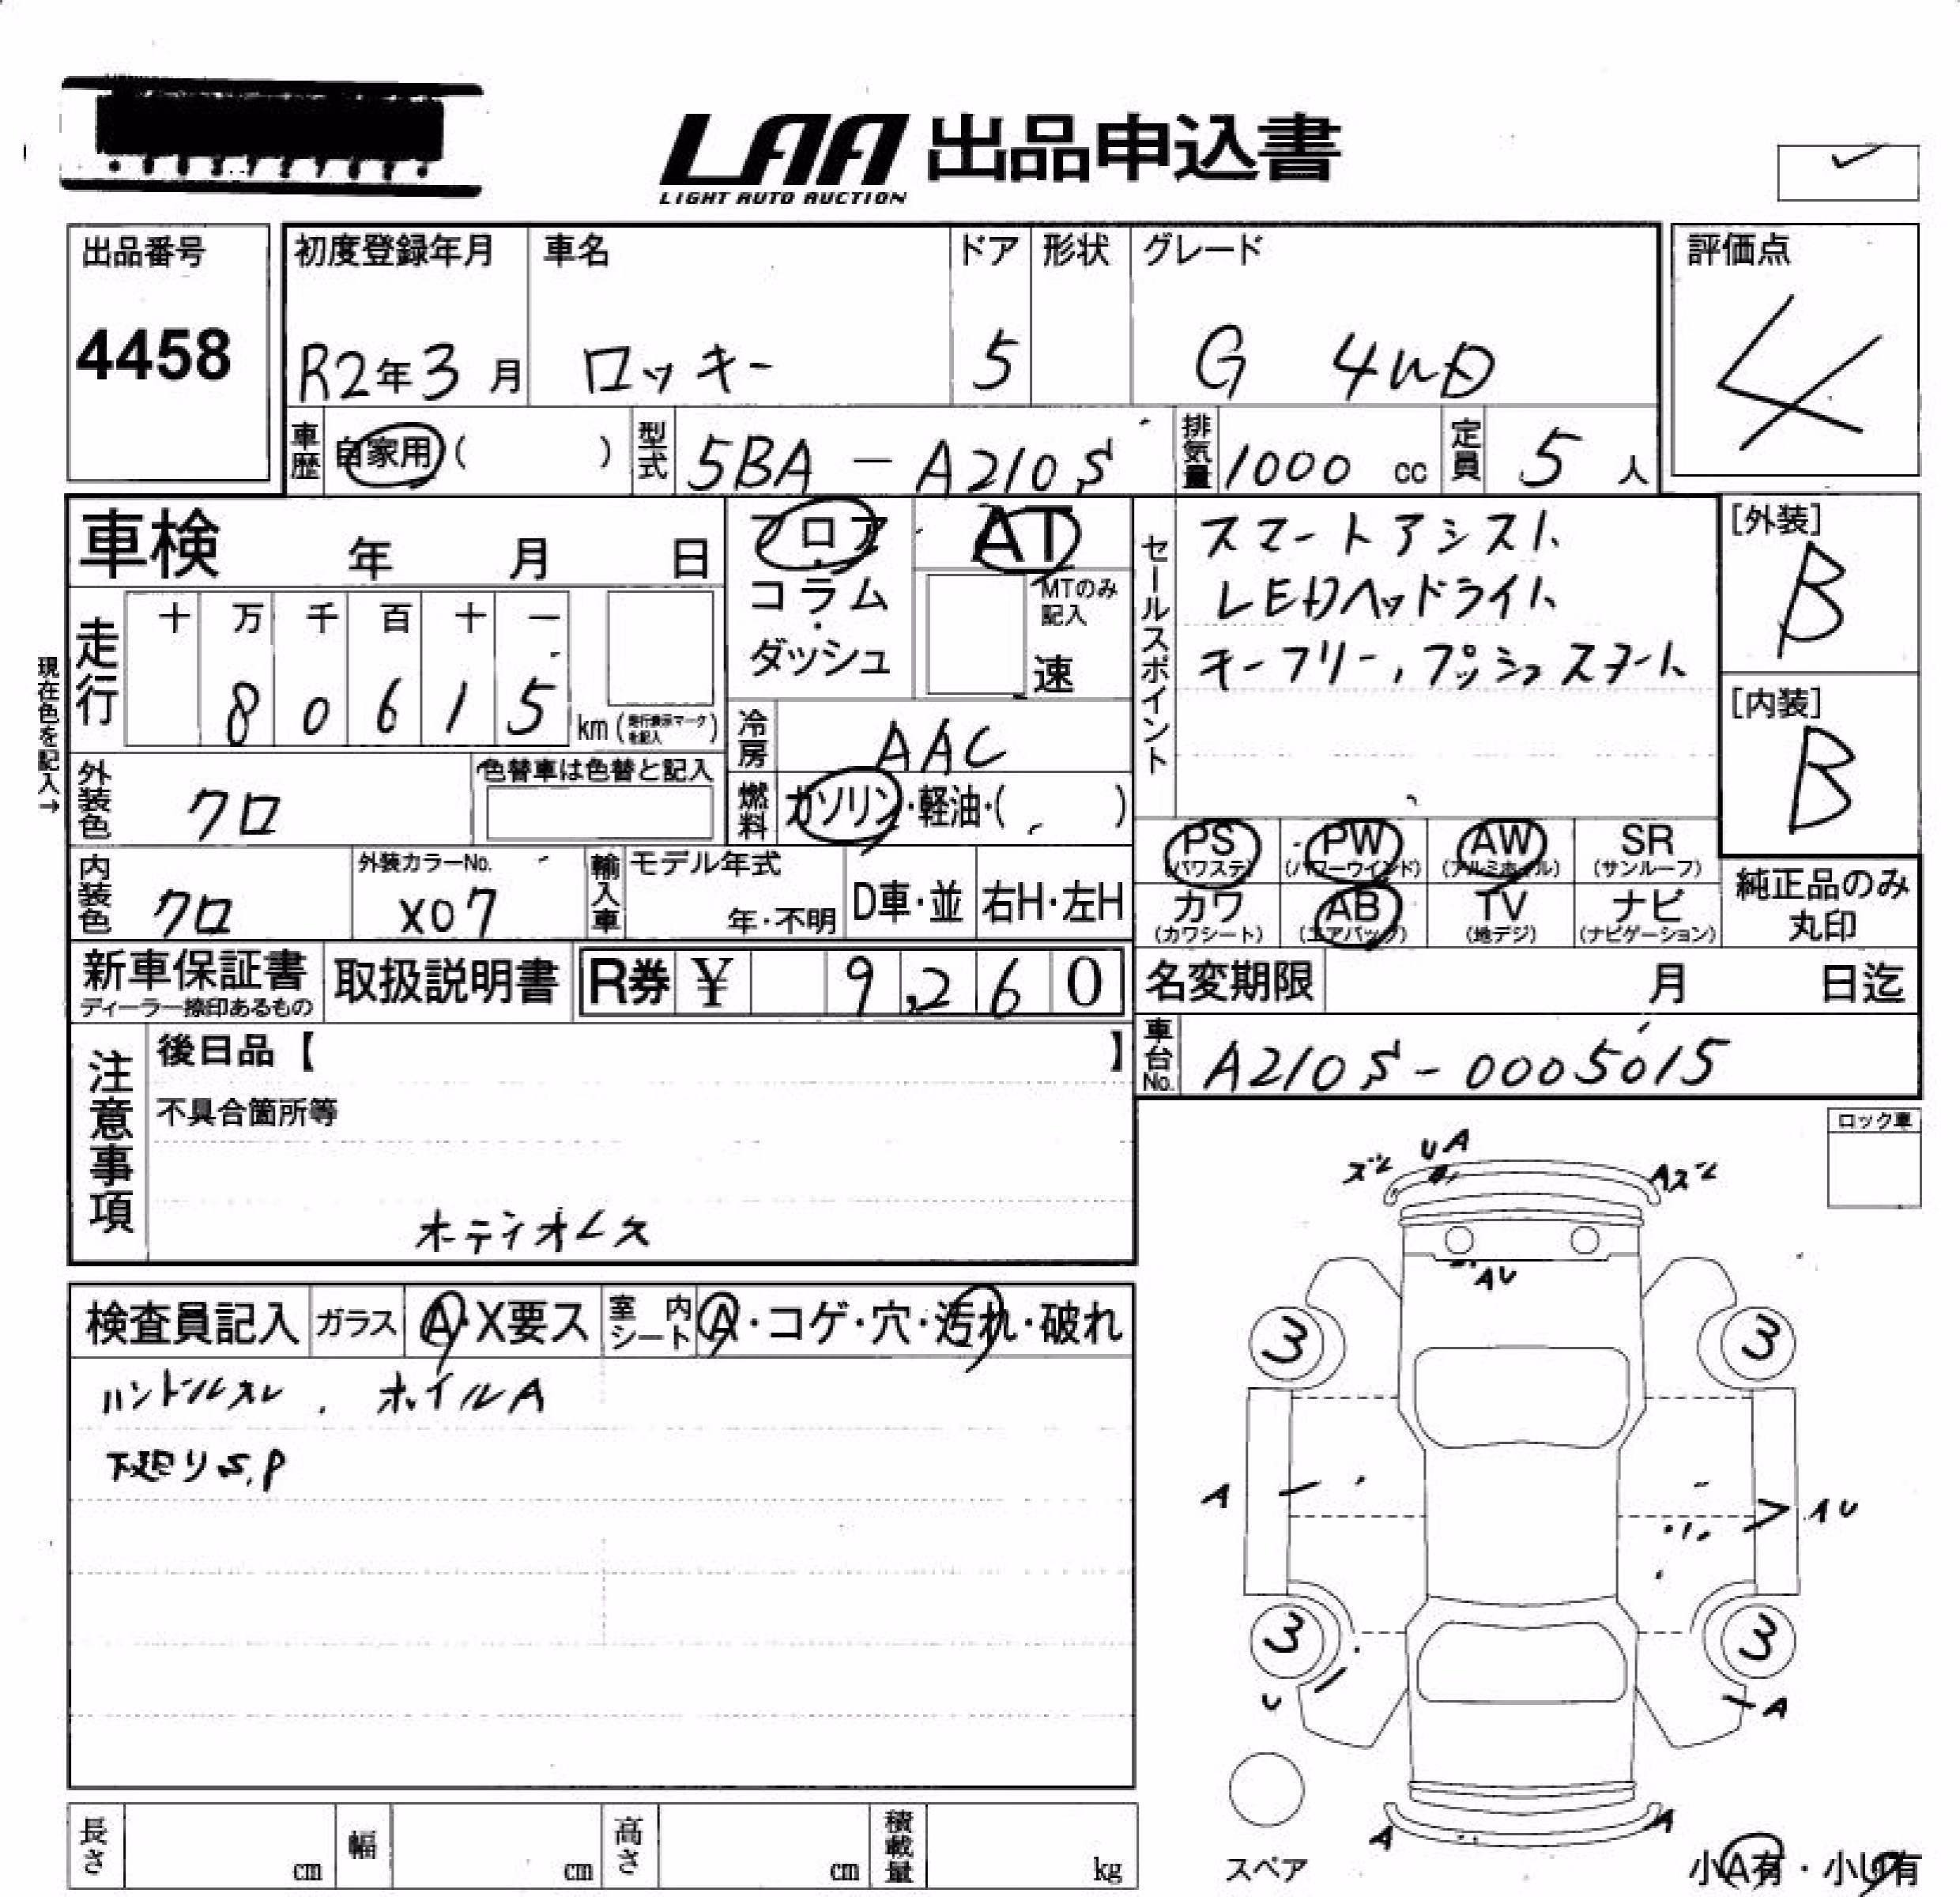 LAA 出品申込書
LIGHT AUTO AUCTION
出品番号
4458
初度登録年月
R2年3月
車名
ロッキー
ドア
5
形状
グレード
G 4WD
評価点
4
車歴 自家用( )
型式 5BA-A210S
排気量 1000 cc
定員 5 人
車検 年 月 日
走行
十 万 千 百 十 一
8 0 6 1 5
km(走行表示マークを記入)
現在色を記入→
外装色 クロ
色替車は色替と記入
内装色 クロ
外装カラーNo.
X07
輸入車 モデル年式
年・不明
D車・並
右H・左H
フロア・
コラム・
ダッシュ
AT
MTのみ記入
速
冷房 AAC
燃料 ガソリン・軽油・( )
セールスポイント
スマートアシスト
LEDヘッドライト
キーフリー,プッシュスタート
[外装]
B
[内装]
B
PS (パワステ)
PW (パワーウインド)
AW (アルミホイル)
SR (サンルーフ)
カワ (カワシート)
AB (エアバッグ)
TV (地デジ)
ナビ (ナビゲーション)
純正品のみ
丸印
新車保証書
ディーラー捺印あるもの
取扱説明書
R券 ¥ 9,260
名変期限 月 日迄
車台No. A210S-0005015
注意事項
後日品【 】
不具合箇所等
オーディオレス
ロック車
検査員記入
ガラス A・X要ス
室内シート A・コゲ・穴・汚れ・破れ
ハンドルスレ . ホイルA
下廻りS,P
ズレ
UA
Aズレ
AU
3
3
A
AU
3
3
U
A
A
A
スペア
小A有・小U有
長さ cm
幅 cm
高さ cm
積載量 kg